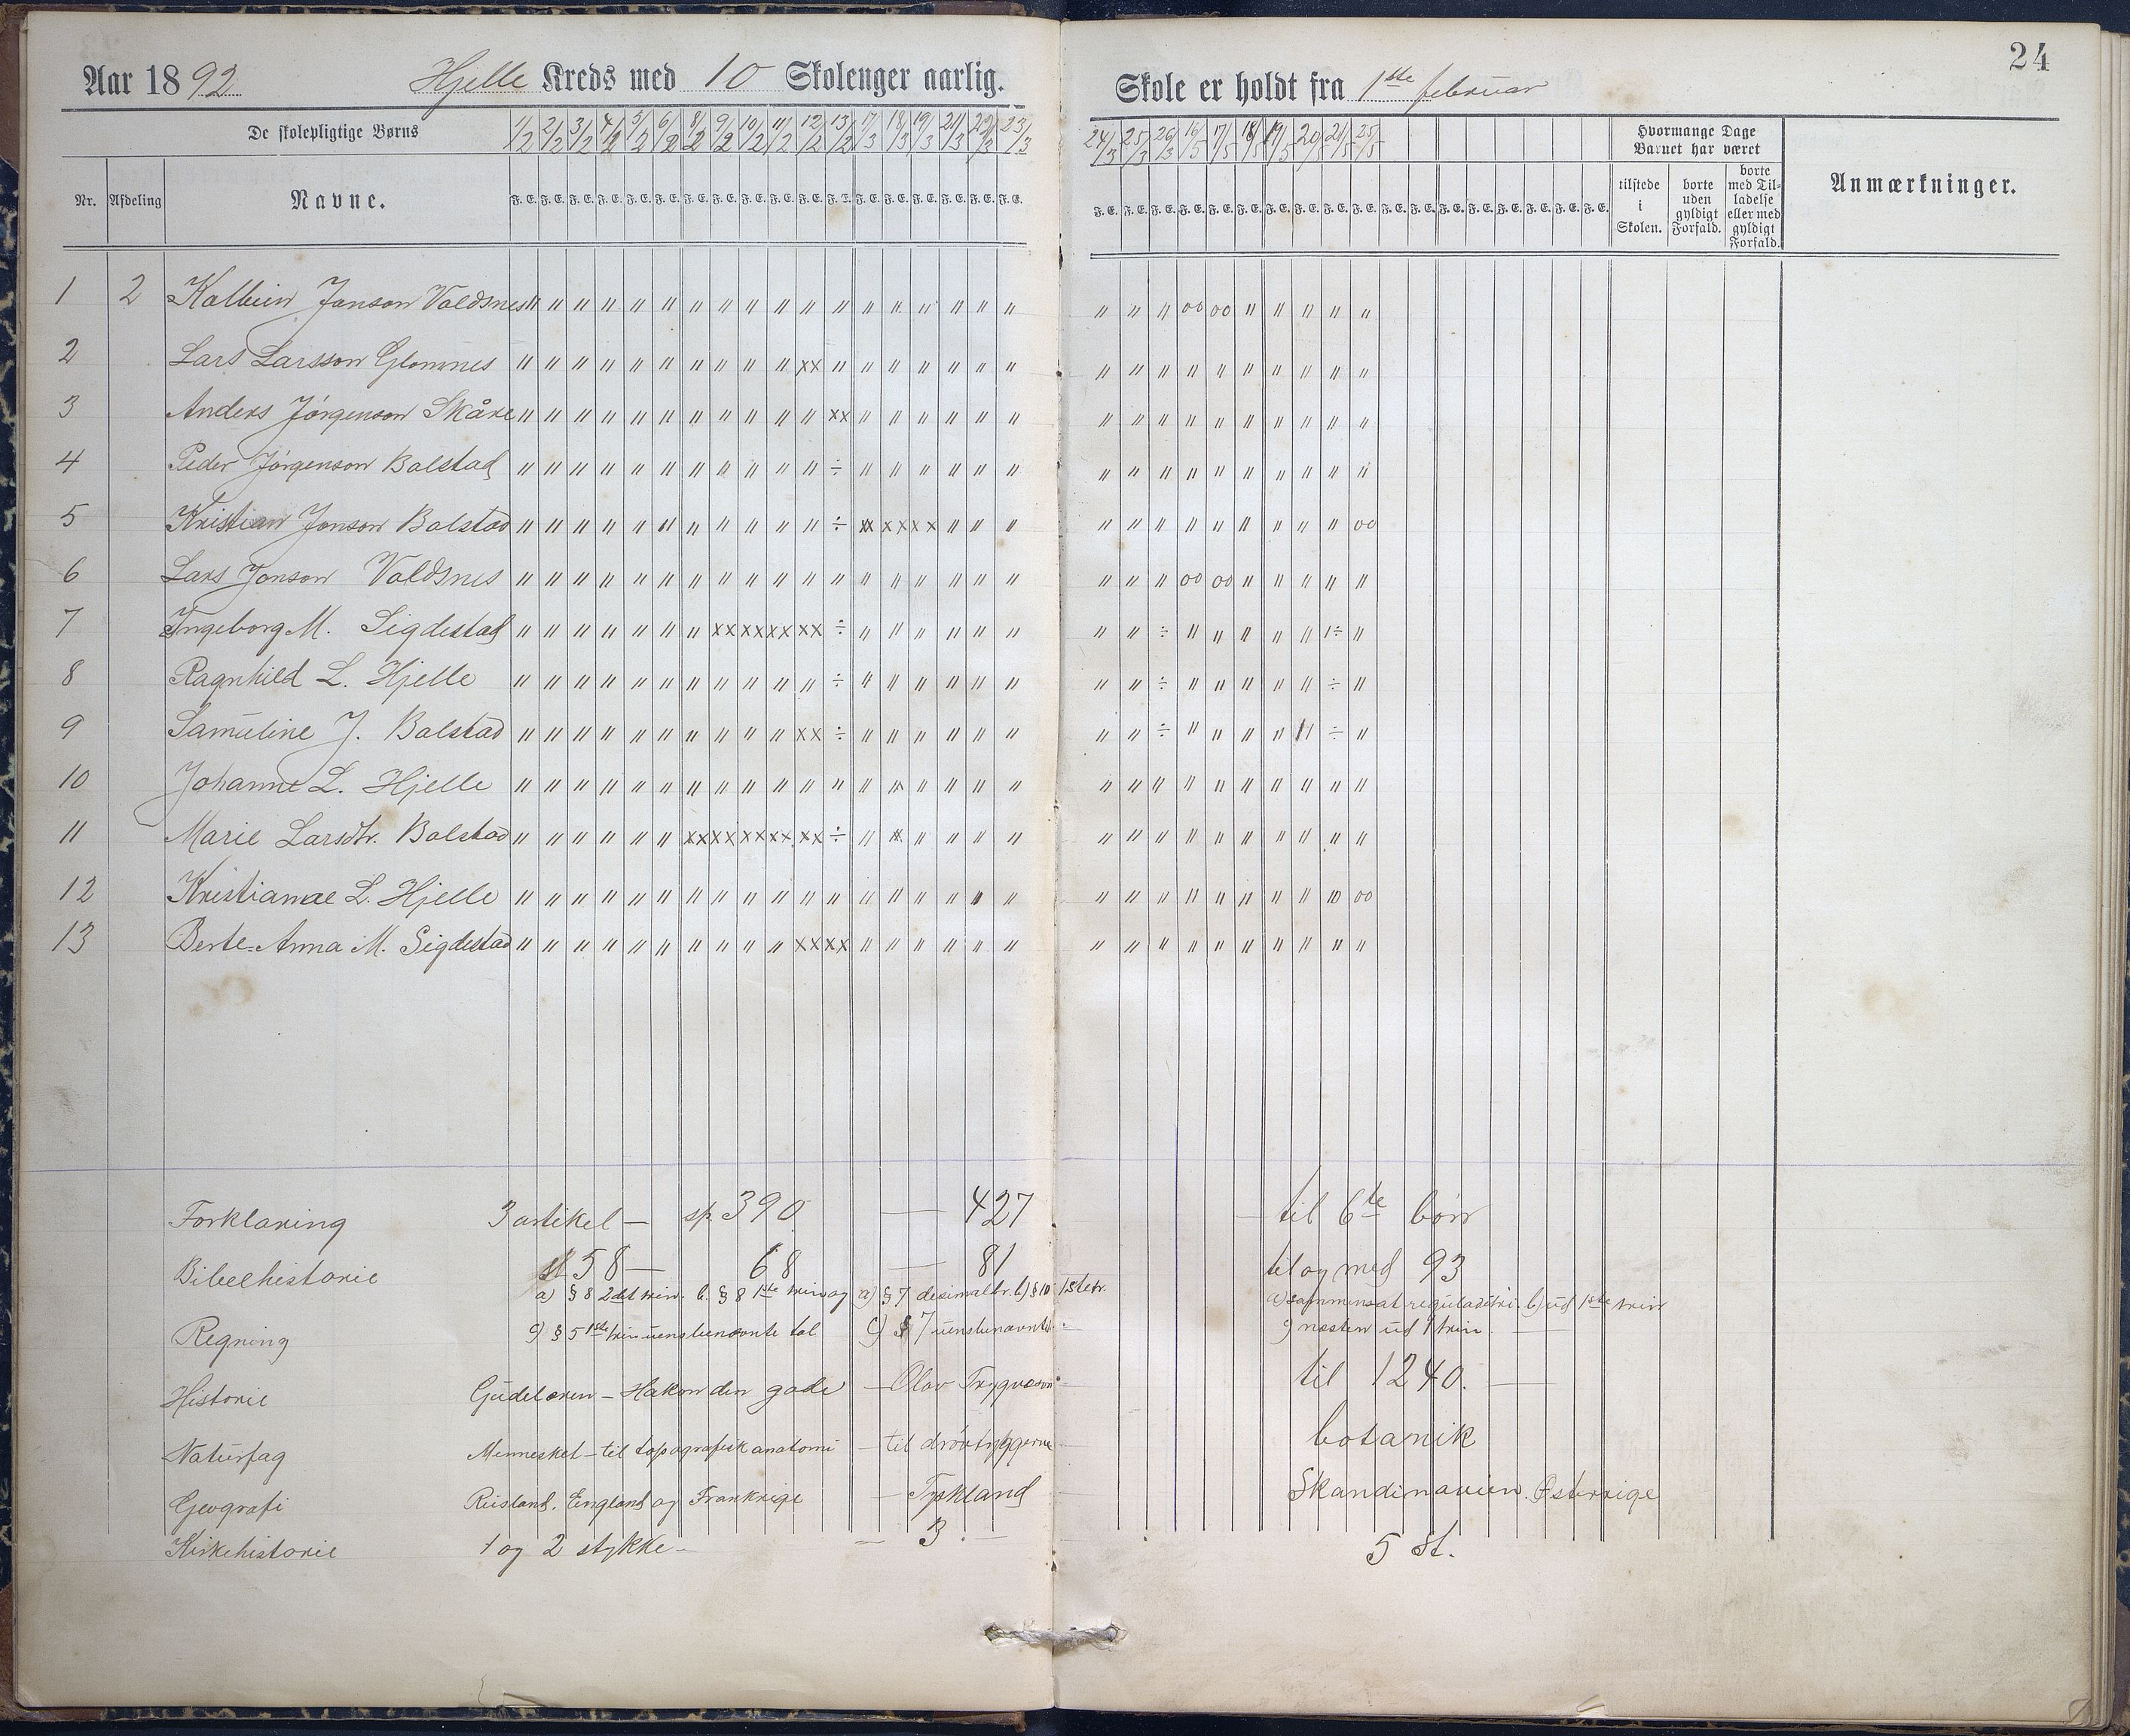 24
Aar 1892 Hjelle Kreds med 10 Skolenger aarlig. Skole er holdt fra 1ste februar
De skolepligtige Børns 1/2 2/2 3/2 4/2 5/2 6/2 8/2 9/2 10/2 11/2 12/2 13/2 17/3 18/3 19/3 21/3 22/3 23/3 24/3 25/3 26/3 16/5 17/5 18/5 19/5 20/5 21/5 25/5 Hvormange Dage Barnet har været
Nr. Afdeling Navne. F. E. F. E. F. E. F. E. F. E. F. E. F. E. F. E. F. E. F. E. F. E. F. E. F. E. F. E. F. E. F. E. F. E. F. E. tilstede i Skolen. borte uden gyldigt Forfald. borte med Tilladelse eller med gyldigt Forfald. Anmærkninger.
1 2 Kolbein Jonson Voldsnes " " " " " " " " " " " " " " " " " " " " " 00 00 " " " " "
2 Lars Larsson Glomnes " " " " " " " " " " xx " " " " " " " " " " " " " " " " "
3 Anders Jørgenson Skåre " " " " " " " " " " " xx " " " " " " " " " " " " " " " "
4 Peder Jørgenson Bolstad " " " " " " " " " " " ÷ " " " " " " " " " " " " " " " "
5 Kristian Jonson Bolstad " " " " " " " " " " " ÷ xx xx xx " " " " " " " " " " " " 00
6 Lars Jonson Voldsnes " " " " " " " " " " " " " " " " " " " " " 00 00 " " " " "
7 Ingeborg M. Sigdestad " " " " " " " xx xx xx xx ÷ " " " " " " " " ÷ " " " " " 1÷ "
8 Ragnhild L. Hjelle " " " " " " " " " " " ÷ " " " " " " " " ÷ " " " " " ÷ "
9 Samuline J. Bolstad " " " " " " " " " " xx ÷ " " " " " " " " ÷ " " " " " ÷ "
10 Johanne L. Hjelle " " " " " " " " " " " " " " " " " " " " " " " " " " " "
11 Marie Larsdtr. Bolstad " " " " " " xx xx xx xx xx ÷ " " " " " " " " " " " " " " " "
12 Kristianae L. Hjelle " " " " " " " " " " " " " " " " " " " " " " " " " " 10 00
13 Berte-Anna M. Sigdestad " " " " " " " " " " xx xx " " " " " " " " " " " " " " " "
Forklaring 3 artikel — sp. 390 — 427 — til 6te bön
Bibelhistorie st 58 — 68 — 81 til og med 93
a) § 8 2det trin. b. § 8 1ste trin og a) § 7 desimalbr. b) § 10 1stetr. a) sammensat reguladetri. b) ud 1ste trin
Regning c) § 5 1ste trin uensbenævnte tal c) § 7 uensbenævnte c) næsten ud 1 trin —
Historie Gudelæren — Hakon den gode — Olav Trygvason — til 1240. —
Naturfag Mennesket — til topografisk anatomi — til drövtyggerne — botanik
Geografi Rusland, England og Frankrige — Tyskland Skandinavien. Østerrige
Kirkehistorie 1 og 2 stykke — — 3. — 5 St.